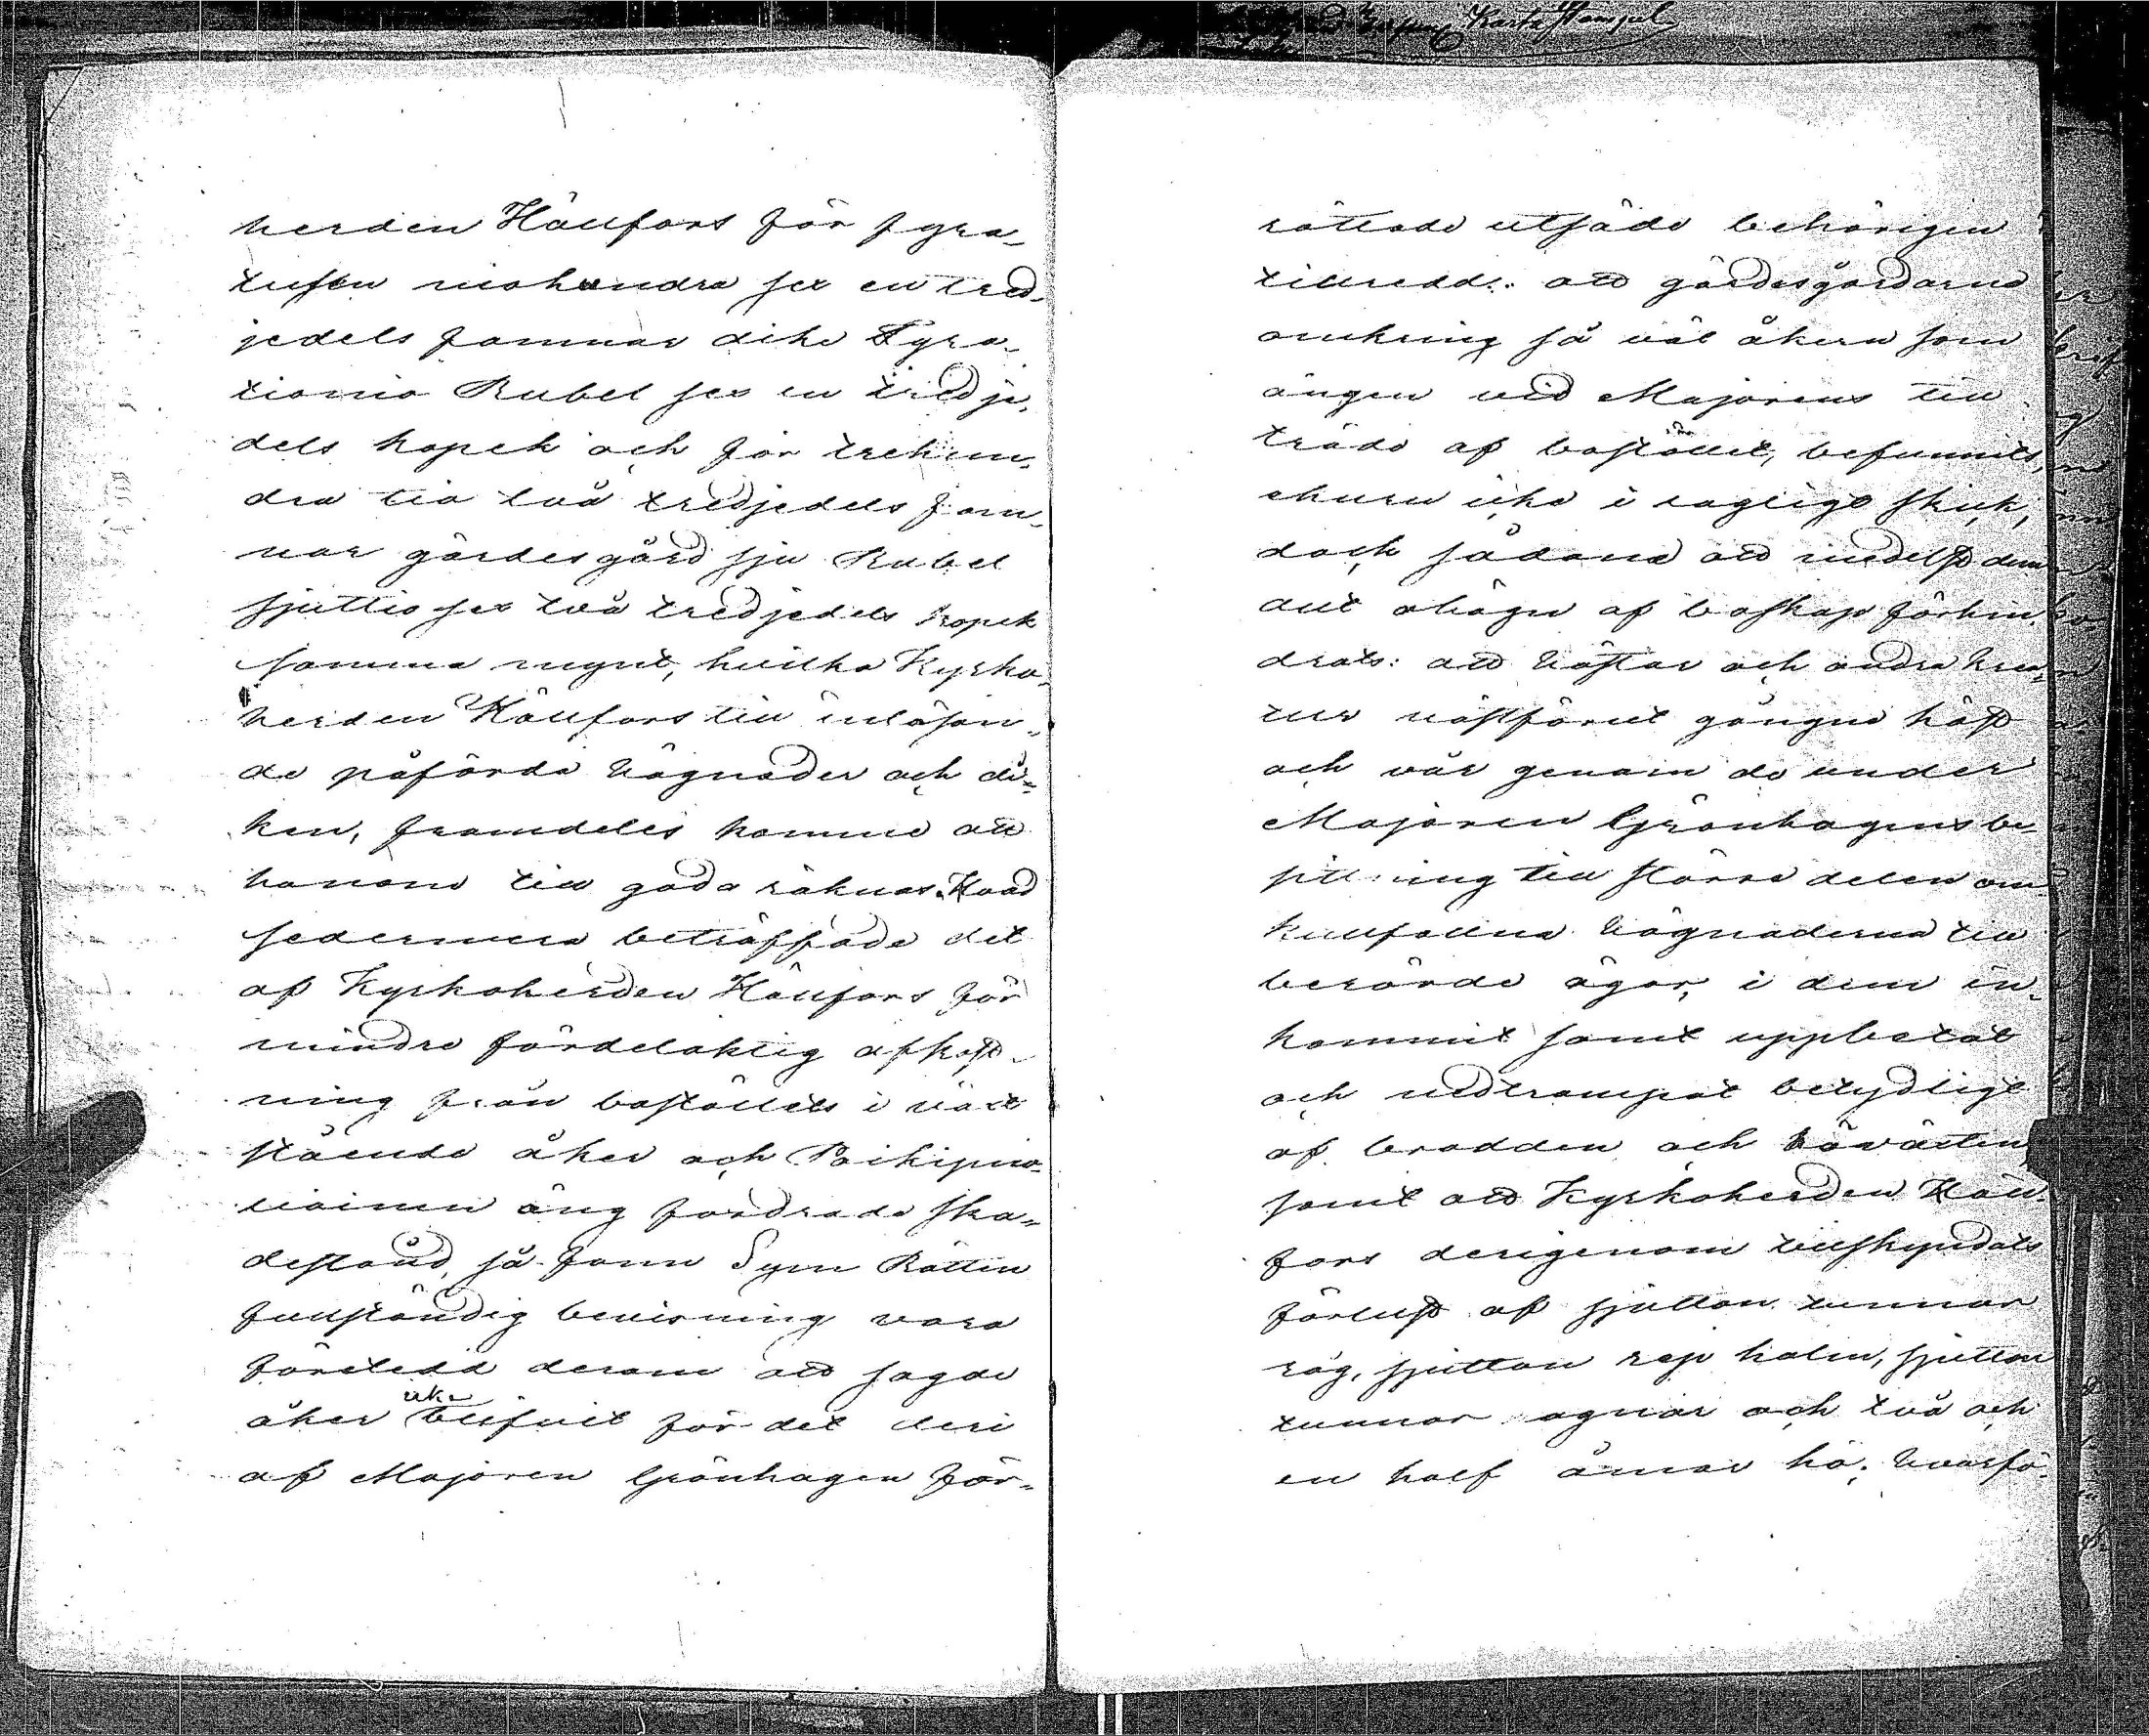 herden Hällfors för fyra-
tusen niohundra sex en tred-
jedels famnar dike Fyra-
tionio Rubel sex en tredje-
dels kopek och för trehun-
dra tio två tredjedels fam-
nar gärdesgård sju Rubel
sjuttio sex två tredjedels kopek
samma mynt, hvilka Kyrko-
herden Hällfors till inlösan-
de påförda hägnader och di-
ken, framdeles komme att
honom till godo räknas. Hvad
sedermera beträffade det
af Kyrkoherden Hällfors för
mindre fördelaktig afkast-
ning från boställets i växt
stående åker och
äng fordrade ska-
destånd, så fann Syne Rätten
fullständig bevisning vara
företedd derom att sagde
åker icke blifvit för det deri
af Majoren Grönhagen för-
rättade utsäde behörigen
tillredd: att gärdesgårdarna
omkring så väl åkern som
ängen vid Majorens till-
träde af bostället, befunnits,
ehuru icke i lagligt skick,
dock sådana att medelst dem
allt ohägn af boskap förhin-
drats: att hästar och andra krea-
tur nästförut gångne höst
och vår genom de under
Majoren Grönhagens be-
sittning till större delen om-
kullfallna hägnaderna till
berörde ägor, i dem in-
kommit samt uppbetat
och nedtrampat betydligt
af brodden och höväxten,
samt att Kyrkoherden Häll-
fors derigenom tillskyndats
förlust af sjutton tunnor
råg, sjutton rep halm, sjutton
tunnor agnar och två och
en half åmar hö; hvarfö-